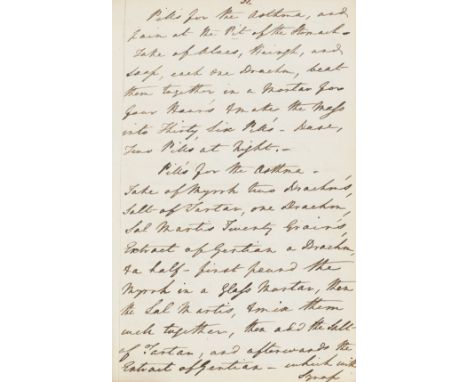 31.
Pills for the Asthma, and
Pain at the Pit of the Stomach -
Take of Aloes, and
Soap, each one Drachm, beat
them together in a Mortar for
four Hours & make the Mass
into Thirty Six Pills - Dose,
Two Pills at Night. -
Pills for the Asthma -
Take of Myrrh two Drachms,
Salt of Tartar, one Drachm,
Sal Martis Twenty Grains,
Extract of Gentian a Drachm,
& a half - first pound the
Myrrh in a Glass Mortar, then
the Sal Martis, & mix them
well together, then add the Salt
of Tartar, and afterwards the
Extract of Gentian - which with
Syrup